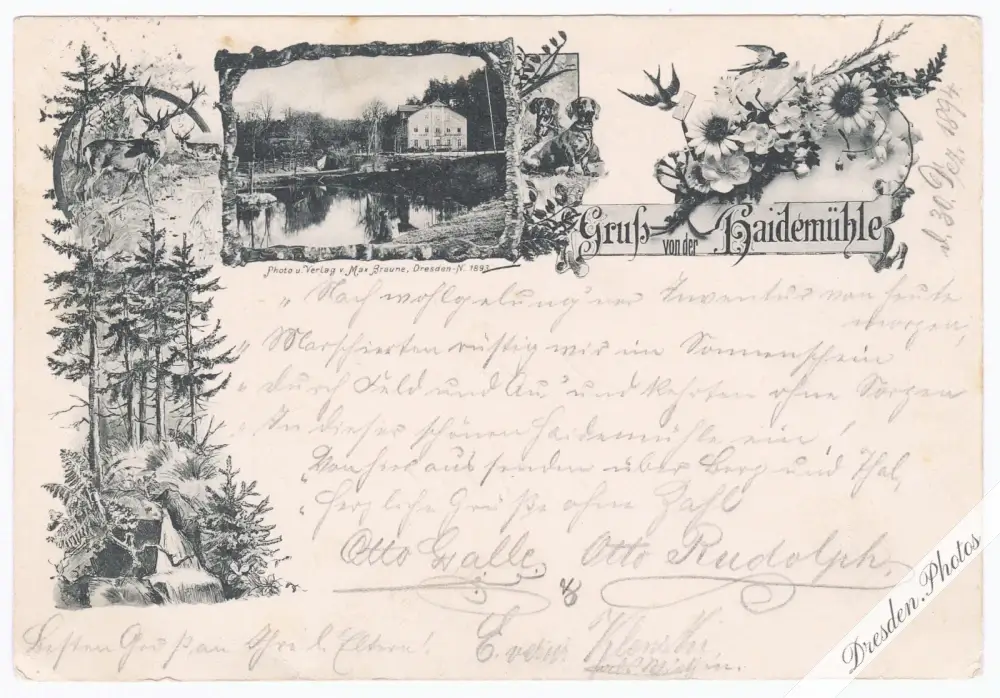 Gruß von der Haidemühle
d. 30. Dez. 1894
Photo u. Verlag v. Max Braune, Dresden-N. 1893
„Nach wohlgelung'ner Inventur von heute
morgen,
„Marschierten rüstig wir im Sonnenschein
„durch Feld und Au' und kehrten ohne Sorgen
„In dieser schönen Haidemühle ein!
„Von hier aus senden über Berg und Thal,
„herzliche Grüße ohne Zahl
Otto Galle. Otto Rudolph.
Besten Gruß an Ihre l. Eltern!
Dresden.Photos